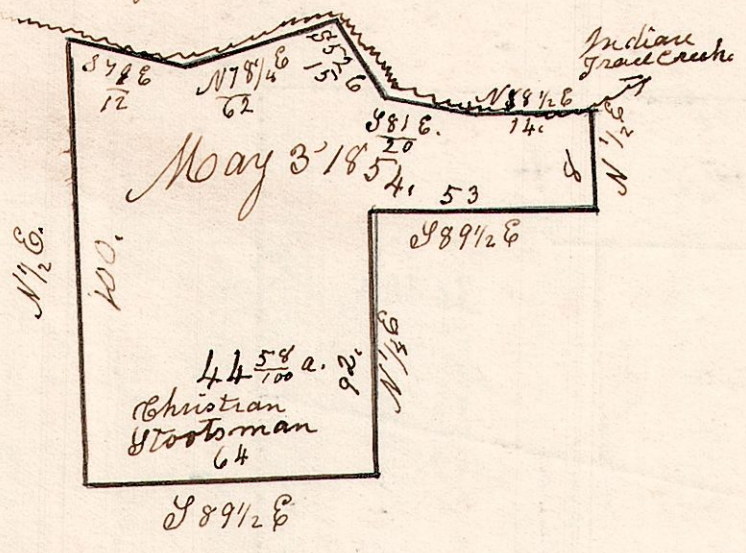 Indian
Trail Creek
S 78 E
12
N 78 1/4 E
62
15
S 81 E.
20
N 88 1/2 E
14.
N 1/2 E
8
May 3' 1854.
53
S 89 1/2 E
N 1/2 E.
100.
N 1/2 E
92.
44 58/100 a.
Christian
Stootsman
64
S 89 1/2 E